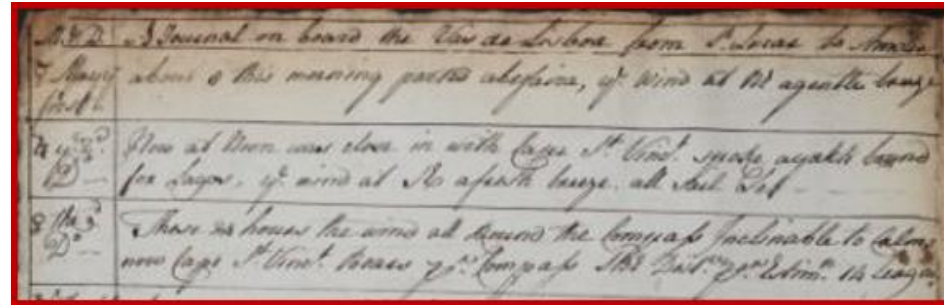 M & D A Journal on board the Vas de Lisboa from St. Lucar to
May about 8 this morning parted, ye. wind at NE a gentle breeze
first
ye. 2d. Now at Noon was close in with Cape St. Vint. spoke a yatch bound
Do for Lagos, ye. wind at a fresh breeze. all Sail Set
the 3d These 24 hours the wind all round the Compass Inclinable to Calms
Do now Cape St. Vint. Bears pr. Compass NE Dist. pr. Estimn. 14 leagues